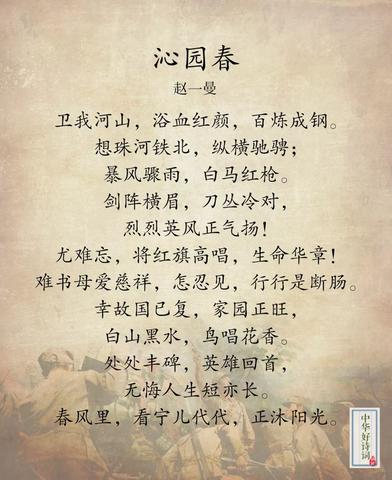 沁园春
赵一曼
卫我河山，浴血红颜，百炼成钢。
想珠河铁北，纵横驰骋；
暴风骤雨，白马红枪。
剑阵横眉，刀丛冷对，
烈烈英风正气扬！
尤难忘，将红旗高唱，生命华章！
难书母爱慈祥，怎忍见，行行是断肠。
幸故国已复，家园正旺，
白山黑水，鸟唱花香。
处处丰碑，英雄回首，
无悔人生短亦长。
春风里，看宁儿代代，正沐阳光。
中华好诗词